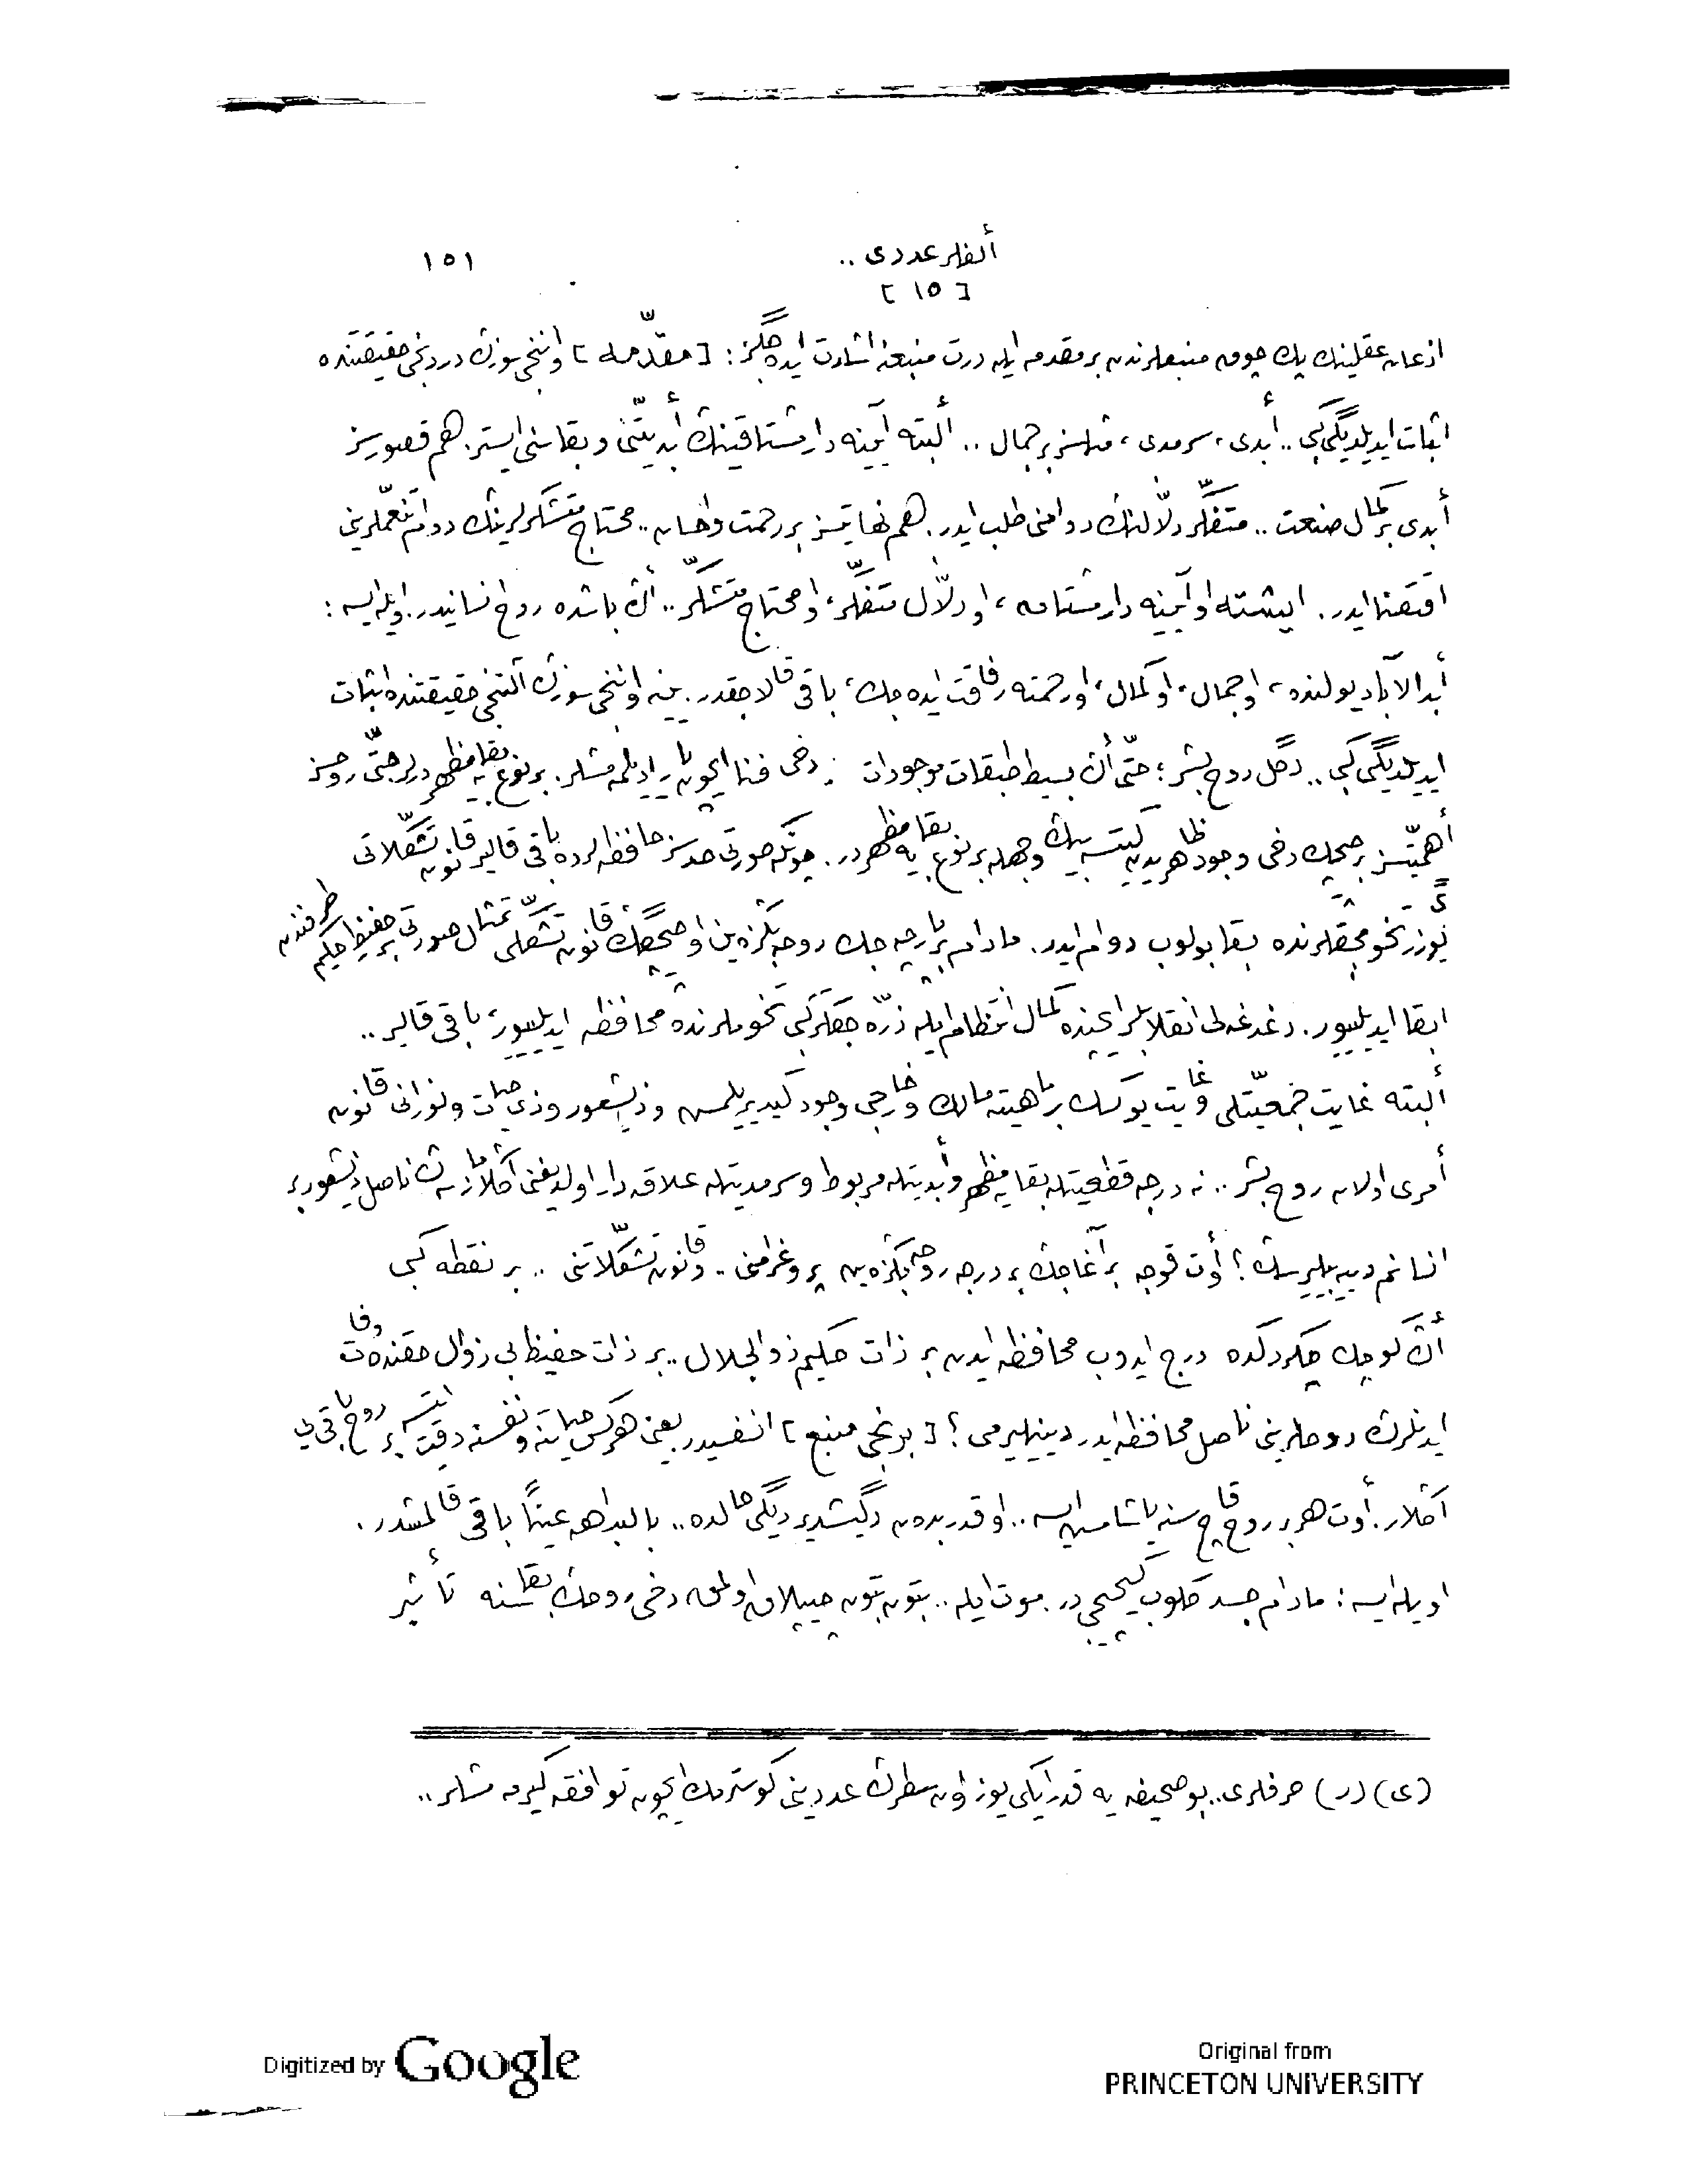 ألفلر عددی ..
١٥١
[ ١٥ ]
اذعان عقلینك پك چوق منبعلرندن بر مقدمه ایله درت منبعنه اشارت ایده جگز : [ مقدّمه ] اوننجی سوزڭ دردنجی حقیقتنده
اثبات ایدیلدیگی گبی .. أبدی ، سرمدی ، مثلسز بر جمال .. ألبته آیینه دار مشتاقینڭ أبدیتنی و بقاسنی ایستر . هم قصورسز
أبدی بر كمال صنعت .. متفكّر دلّالنڭ دوامنی طلب ایدر . هم نهایتسز بر رحمت و احسان .. محتاج متشكّرلرینڭ دوام تنعّملرینی
اقتضا ایدر . ایشته او آیینه دار مشتاق ، او دلّال متفكّر ، او محتاج متشكّر .. أڭ باشده روح انسانیدر . اویله ایسه :
أبد الآباد یولنده ، او جمال ، او كمال ، او رحمته رفاقت ایده جك ، باقی قالاجقدر . ینه اوننجی سوزڭ آلتنجی حقیقتنده اثبات
ایدیلدیگی گبی .. دگل روح بشر ؛ حتّی أڭ بسیط طبقات موجودات دخی فنا ایچون یارادیلمه مشلر . بر نوع بقایه مظهردرلر حتّی روحسز
أهمّیتسز بر چیچك دخی وجود ظاهریدن گیتسه بیڭ وجهله بر نوع بقایه مظهردر . چونكه صورتی حدسز حافظه لرده باقی قالیر قانون تشكّلاتی
یوزر تخومجقلرنده بقا بولوب دوام ایدر . مادام بر پارچه جك روحه بڭزه ین او چیچگڭ قانون تشكّلی تمثال صورتی بر حفیظ حكیم طرفندن
ابقا ایدیلییور . دغدغه لی انقلابلر ایچنده كمال انتظام ایله ذرّه جكلر گبی تخوملرنده محافظه ایدیلییور ، باقی قالیر ..
ألبته غایت جمعیّتلی و غایت یوكسك بر ماهیته مالك و خارجی وجود گیدیریلمش و ذیشعور و ذیحیات و نورانی قانون
أمری اولان روح بشر .. نه درجه قطعیتله بقایه مظهر و أبدیتله مربوط و سرمدیتله علاقه دار اولدیغنی آڭلامازسه ڭ ناصل ذیشعور بر
انسانم دییه بیلیرسڭ ؟ أوت قوجه بر آغاجڭ بر درجه روحه بڭزه ین پروغرامنی .. و قانون تشكّلاتنی .. بر نقطه گبی
أڭ كوچك چكردكده درج ایدوب محافظه ایدن بر ذات حكیم ذوالجلال .. بر ذات حفیظ بی زوال حقنده وفات
ایدنلرڭ روحلرینی ناصل محافظه ایدر دینیلیرمی ؟ [ برنجی منبع ] انفسیدر یعنی هركس حیاتنه و نفسنه دقت ایتسه بر روح باقی یی
آڭلار . أوت هر بر روح قاچ سنه یاشامش ایسه .. او قدر بدن دگیشدیردیگی حالده .. بالبداهه عیناً باقی قالمشدر .
اویله ایسه : مادام جسد گلوب گیچیجیدر . موت ایله .. بتون بتون چیپلاق اولمق دخی روحڭ بقاسنه تأثیر
(ی) (ر) حرفلری .. بو صحیفه یه قدر ایكی یوز اون سطرڭ عددینی گوسترمك ایچون توافقه گیرمه مشلر ..
Digitized by Google
Original from
PRINCETON UNIVERSITY